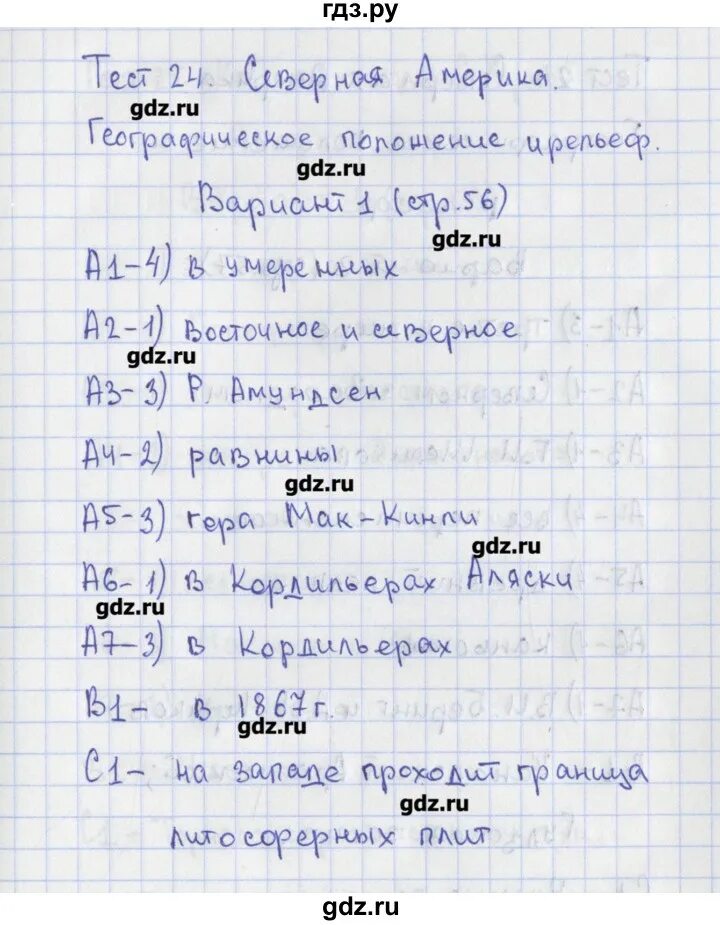 гдз.ру
Тест 24 Северная Америка.
gdz.ru
Географическое положение и рельеф.
gdz.ru
Вариант 1 (стр. 56)
gdz.ru
А1-4) в умеренных
А2-1) восточное и северное
gdz.ru
А3-3) Р. Амундсен
А4-2) равнины
gdz.ru
А5-3) гора Мак-Кинли
gdz.ru
А6-1) в Кордильерах Аляски
gdz.ru
А7-3) в Кордильерах
В1- в 1867г.
gdz.ru
С1- на западе проходит граница
gdz.ru
литосферных плит
gdz.ru